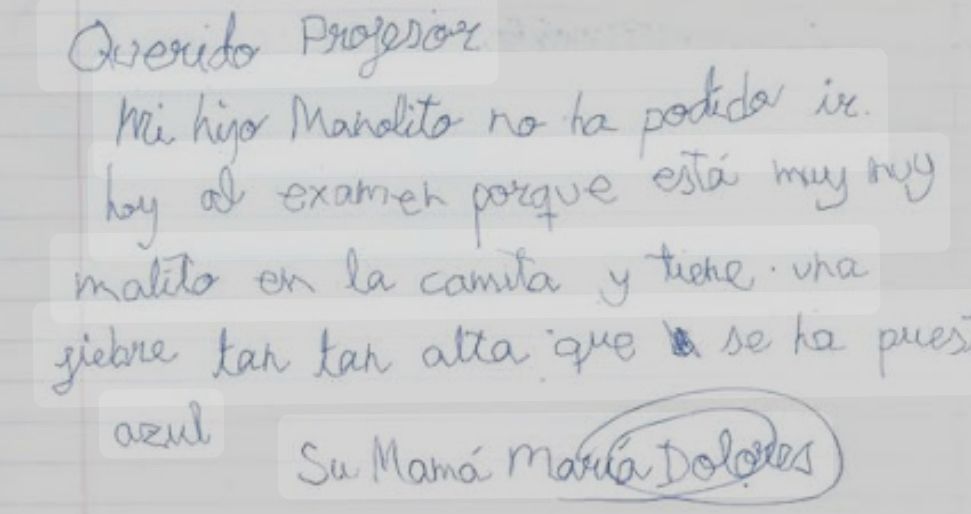 Querido Profesor
Mi hijo Manolito no ha podido ir.
hoy al examen porque está muy muy
malito en la camita y tiene una
fiebre tan tan alta que se ha pues
azul
Su Mamá María Dolores